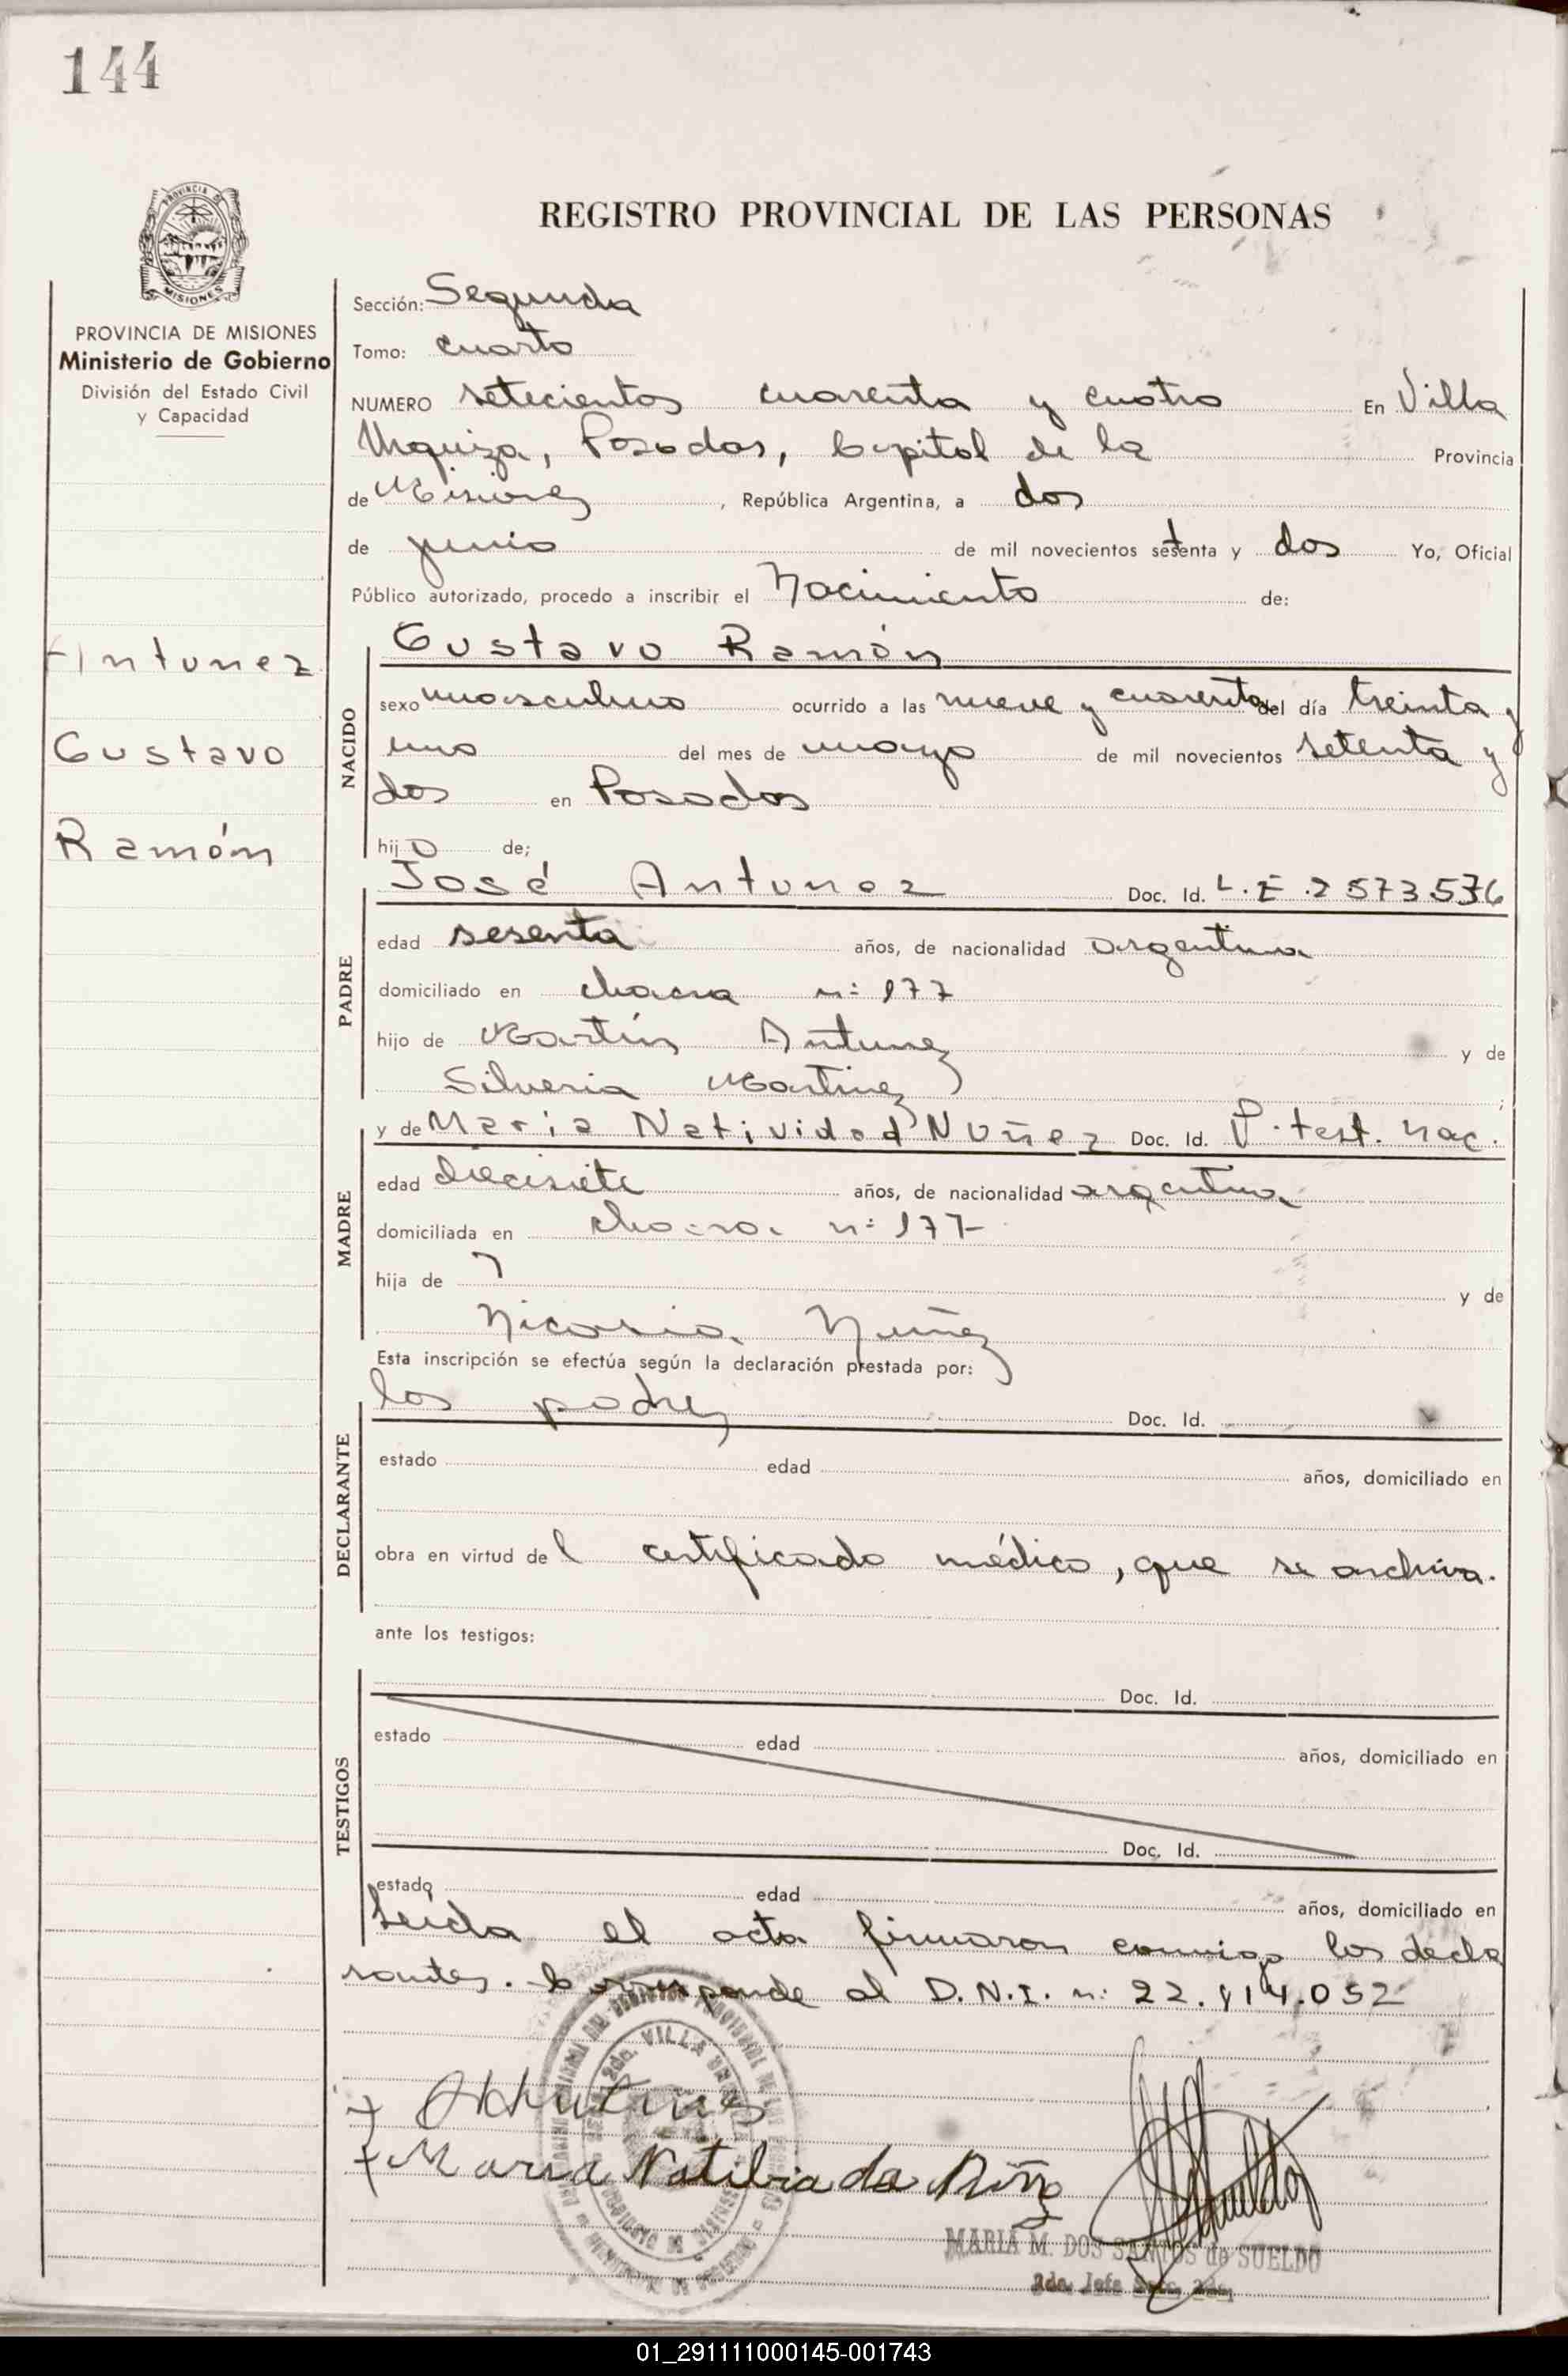 144
PROVINCIA DE
MISIONES
REGISTRO PROVINCIAL DE LAS PERSONAS
PROVINCIA DE MISIONES
Ministerio de Gobierno
División del Estado Civil
y Capacidad
Sección: Segunda
Tomo: cuarto
NUMERO setecientos cuarenta y cuatro En Villa
Urquiza, Posadas, Capital de la Provincia
de Misiones, República Argentina, a dos
de junio de mil novecientos setenta y dos Yo, Oficial
Público autorizado, procedo a inscribir el Nacimiento de:
Antunez
Gustavo
Ramón
NACIDO
Gustavo Ramón
sexo masculino ocurrido a las nueve y cuarenta del día treinta y
uno del mes de mayo de mil novecientos setenta y
dos en Posadas
hijo de;
PADRE
José Antunez Doc. Id. L.E. 2573576
edad sesenta años, de nacionalidad argentina
domiciliado en chacra n: 177
hijo de Martín Antunez y de
Silveria Martinez;
MADRE
y de María Natividad Nuñez Doc. Id. P. test. nac.
edad diecisiete años, de nacionalidad argentina
domiciliada en chacra n: 177
hija de y de
Nicasia Nuñez
Esta inscripción se efectúa según la declaración prestada por:
DECLARANTE
los padres Doc. Id.
estado edad años, domiciliado en
obra en virtud del certificado médico, que se archiva.
ante los testigos:
TESTIGOS
Doc. Id.
estado edad años, domiciliado en
Doc. Id.
estado edad años, domiciliado en
Leída el acta firmaron conmigo los decla
rantes. Corresponde al D.N.I. n: 22.414.052
VILLA
María Natibidada
MARIA M. DOS SANTOS de SUELDO
01_291111000145-001743